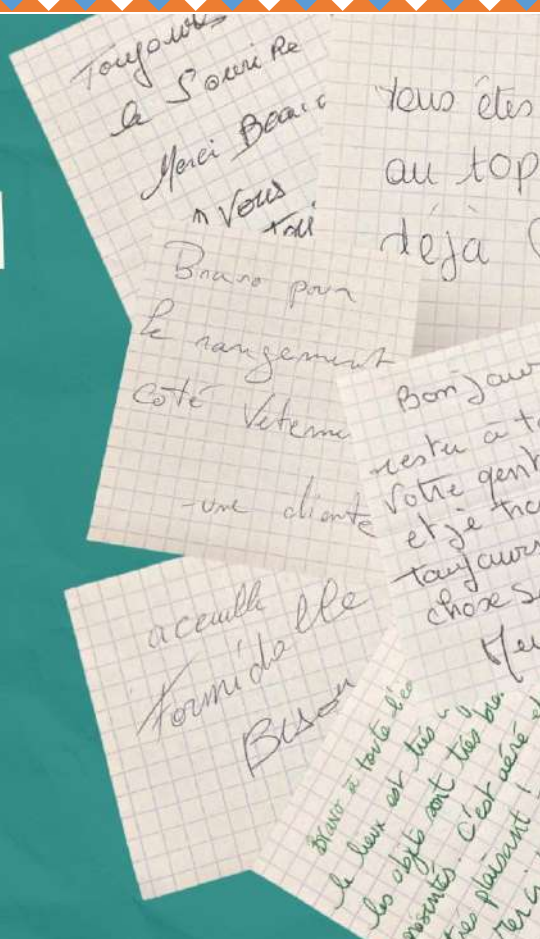 Toujours
le Souri Re
Merci Beau
à Vous
tous êtes
au top
déjà
Bravo pour
le rangement
coté Veteme
-une cliente
Bonjour
rester à
Votre gent
et je
toujours
chose
acceuille
Formidable
Bisou
Bravo à toute
le lieux est très
les objets sont très
présentés. C'est aéré et
très plaisant !
Merci